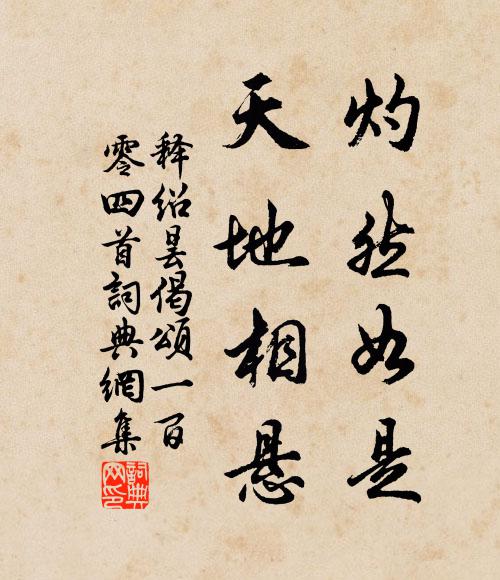 灼然如是
天地相悬
释绍昙偈颂一百
零四首詞典網集
詞典网印